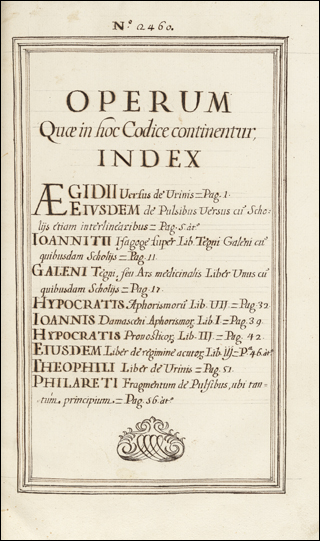 Nº 2460.
OPERUM
Quæ in hoc Codice continentur,
INDEX
ÆGIDII Uersus de Urinis = Pag. 1.
EIUSDEM de Pulsibus Uersus cū Scho-
lijs etiam interlinearibus = Pag. 5. at.º
IOANNITII Isagoge super Lib. Tegni Galeni cū
quibusdam Scholijs = Pag. 11.
GALENI Tegni, seu Ars medicinalis Liber Unus cū
quibusdam Scholijs = Pag. 17.
HYPOCRATIS Aphorismorū Lib. VII = Pag. 32.
IOANNIS Damasceni Aphorismor, Lib. I = Pag. 39.
HYPOCRATIS Pronosticor, Lib. III = Pag. 42.
EIUSDEM Liber de regimine acutor, Lib. III = P.ª 46. at.º
THEOPHILI Liber de Urinis = Pag. 51.
PHILARETI Fragmentum de Pulsibus, ubi tan-
tum principium = Pag. 56. at.º